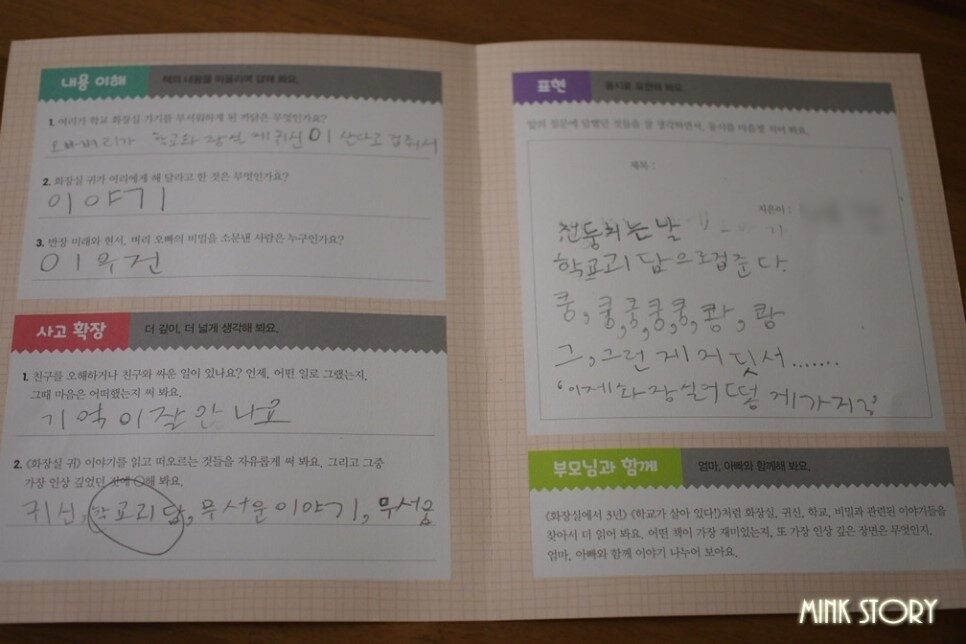 내용 이해
책의 내용을 떠올리며 답해 봐요.
1. 여리가 학교 화장실 가기를 무서워하게 된 까닭은 무엇인가요?
오빠 머리가 학교화장실에 귀신이 산다고 겁줘서
2. 화장실 귀가 여리에게 해 달라고 한 것은 무엇인가요?
이야기
3. 반장 미래와 현서, 머리 오빠의 비밀을 소문낸 사람은 누구인가요?
이유전
사고 확장
더 깊이, 더 넓게 생각해 봐요.
1. 친구를 오해하거나 친구와 싸운 일이 있나요? 언제, 어떤 일로 그랬는지,
그때 마음은 어떠했는지 써 봐요.
기억이잘안나요
2. 《화장실 귀》 이야기를 읽고 떠오르는 것들을 자유롭게 써 봐요. 그리고 그중
가장 인상 깊었던 것에 ○해 봐요.
귀신, 학교괴담, 무서운이야기, 무서움
표현
동시로 표현해 봐요.
앞의 질문에 답했던 것들을 잘 생각하면서, 동시를 마음껏 적어 봐요.
제목 :
지은이 :
천둥치는날
학교괴담으로겁준다.
쿵, 쿵,쿵,쿵,쿵, 쾅, 쾅
그, 그런게 어딧서.......
'이제화장실어떻게가지?'
부모님과 함께
엄마, 아빠와 함께해 봐요.
《화장실에서 3년》 《학교가 살아 있다!》처럼 화장실, 귀신, 학교, 비밀과 관련된 이야기들을
찾아서 더 읽어 봐요. 어떤 책이 가장 재미있는지, 또 가장 인상 깊은 장면은 무엇인지,
엄마, 아빠와 함께 이야기 나누어 보아요.
MINK STORY